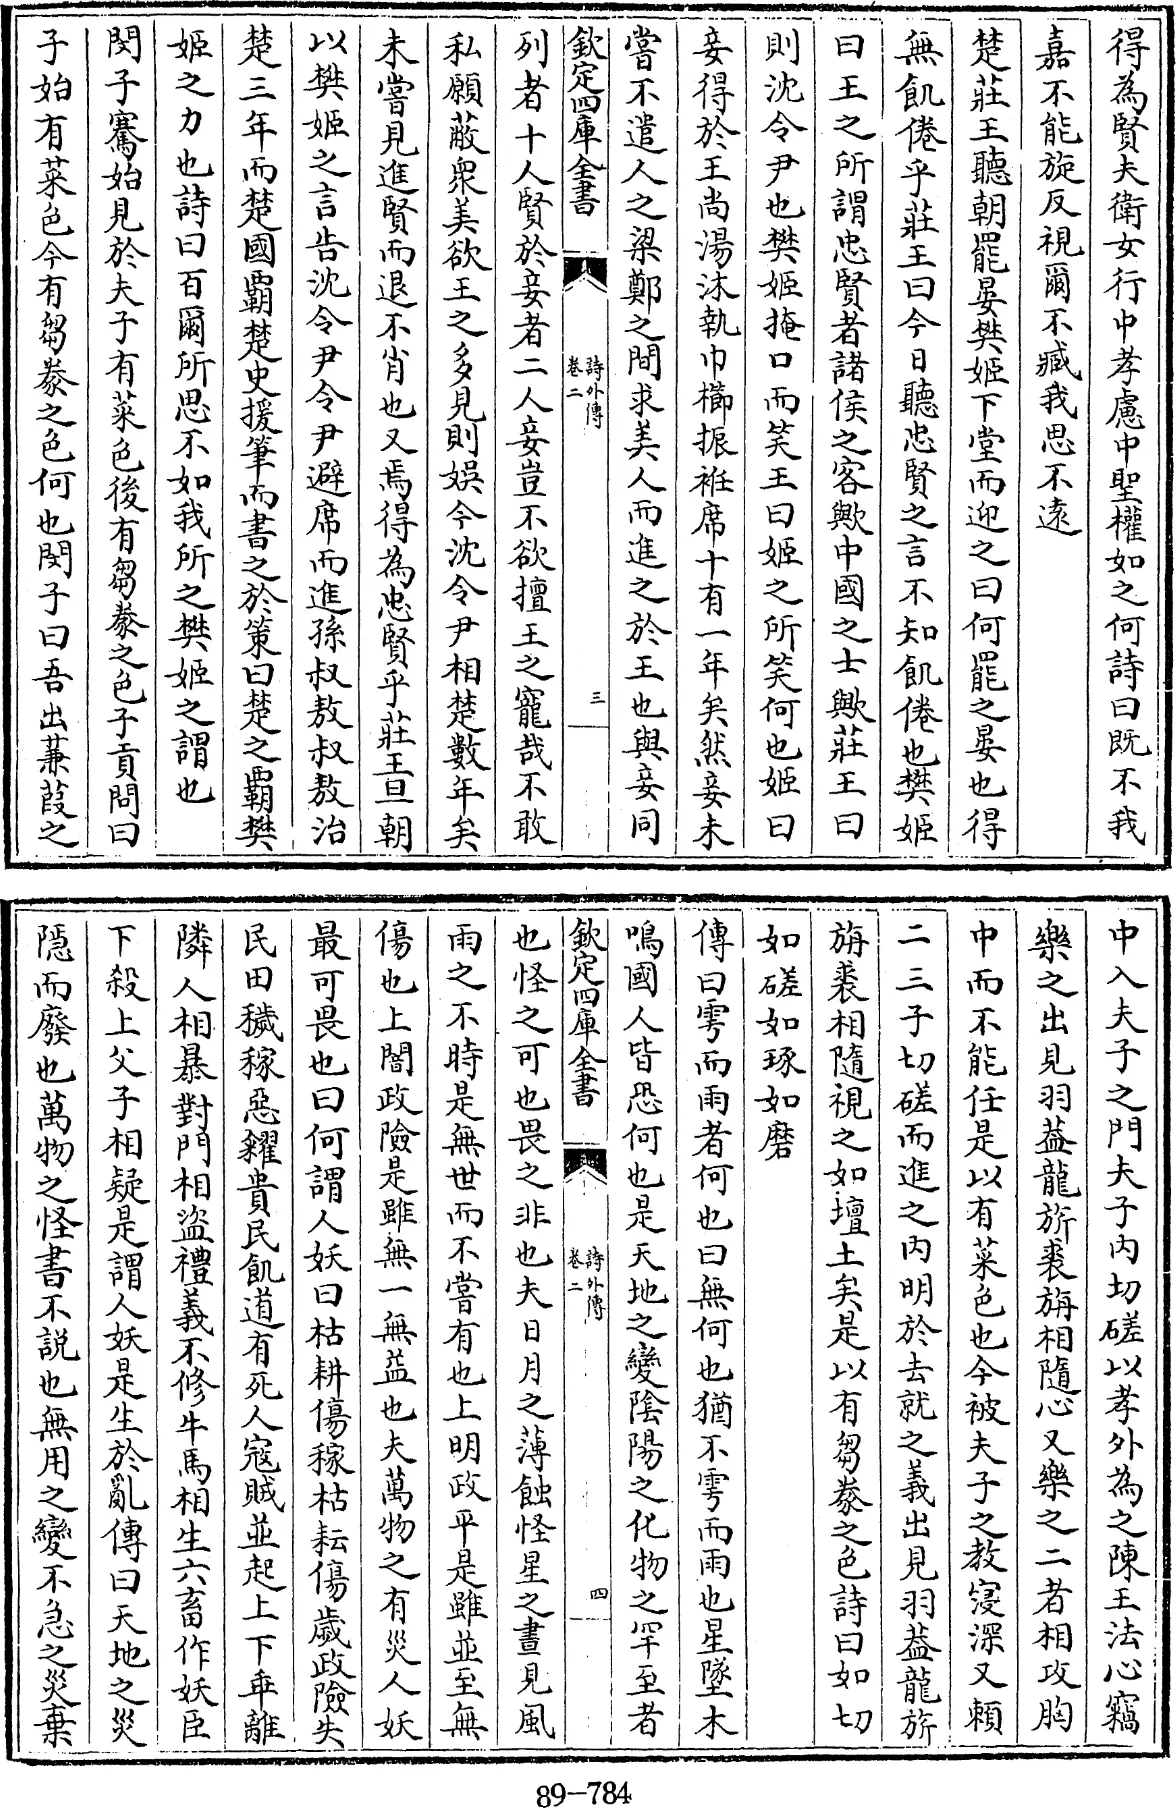 得為賢夫衛女行中孝慮中聖權如之何詩曰既不我
嘉不能旋反視爾不臧我思不遠
楚莊王聽朝罷晏樊姬下堂而迎之曰何罷之晏也得
無飢倦乎莊王曰今日聽忠賢之言不知飢倦也樊姬
曰王之所謂忠賢者諸侯之客歟中國之士歟莊王曰
則沈令尹也樊姬掩口而笑王曰姬之所笑何也姬曰
妾得於王尚湯沐執巾櫛振袵席十有一年矣然妾未
嘗不遣人之梁鄭之間求美人而進之於王也與妾同
欽定四庫全書
詩外傳
卷二
三
列者十人賢於妾者二人妾豈不欲擅王之寵哉不敢
私願蔽衆美欲王之多見則娯今沈令尹相楚數年矣
未嘗見進賢而退不肖也又焉得為忠賢乎莊王旦朝
以樊姬之言告沈令尹令尹避席而進孫叔敖叔敖治
楚三年而楚國覇楚史援筆而書之於策曰楚之覇樊
姬之力也詩曰百爾所思不如我所之樊姬之謂也
閔子騫始見於夫子有菜色後有芻豢之色子貢問曰
子始有菜色今有芻豢之色何也閔子曰吾出蒹葭之
中入夫子之門夫子内切磋以孝外為之陳王法心竊
樂之出見羽葢龍旂裘旃相隨心又樂之二者相攻胸
中而不能任是以有菜色也今被夫子之教寖深又賴
二三子切磋而進之内明於去就之義出見羽葢龍旂
旃裘相隨視之如壇土矣是以有芻豢之色詩曰如切
如磋如琢如磨
傳曰雩而雨者何也曰無何也猶不雩而雨也星墜木
鳴國人皆恐何也是天地之變陰陽之化物之罕至者
欽定四庫全書
詩外傳
卷二
四
也怪之可也畏之非也夫日月之薄蝕怪星之晝見風
雨之不時是無世而不嘗有也上明政平是雖並至無
傷也上闇政險是雖無一無益也夫萬物之有災人妖
最可畏也曰何謂人妖曰枯耕傷稼枯耘傷歲政險失
民田穢稼惡糴貴民飢道有死人寇賊並起上下乖離
隣人相暴對門相盜禮義不修牛馬相生六畜作妖臣
下殺上父子相疑是謂人妖是生於亂傳曰天地之災
隱而廢也萬物之怪書不説也無用之變不急之災棄
89-784